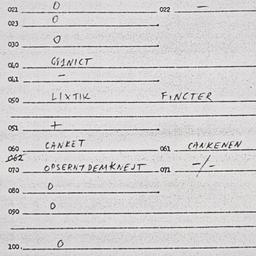 021 0 022 —
023 0
030 0
040 GSINICT
041 —
050 LIXTIK FINCTER
051 +
060 CANKET 061 CANKENEN
062
070 OPSERNT DEMKNEJT 071 -/-
080 0
090 0
100. 0